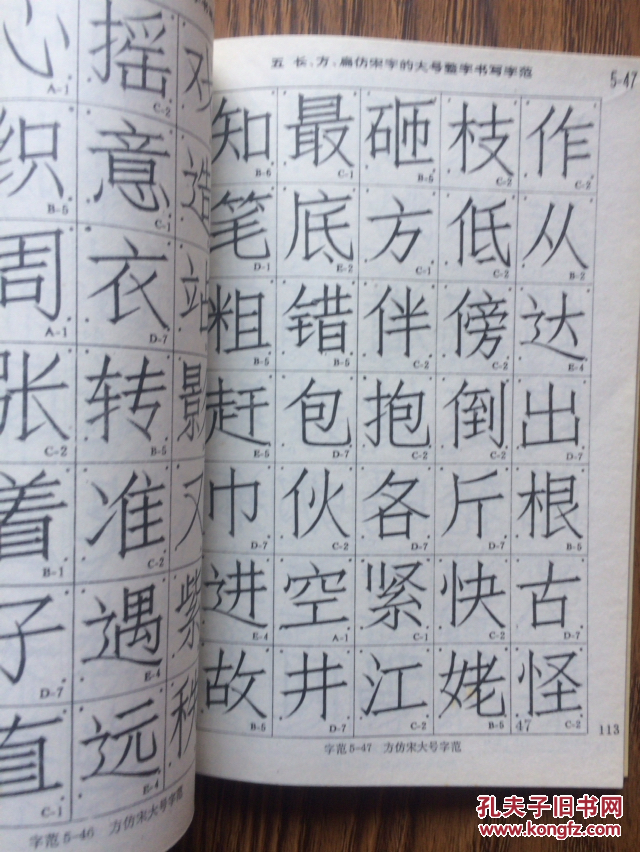 心 摇 对
A-1 C-2
织 意 造
B-5 C-1
周 衣 站
A-1 D-7
张 转 影
C-2 B-5
着 准 又
B-1 C-2
子 遇 紫
D-7 E-4
直 远 秩
C-1 E-4
字范5-46 方仿宋大号字范
五 长、方、扁仿宋字的大号整字书写字范
5-47
知 最 砸 枝 作
B-6 C-1 B-5 C-2 C-2
笔 底 方 低 从
D-1 E-2 C-1 C-2 B-2
粗 错 伴 傍 达
B-5 B-5 C-2 C-2 E-4
赶 包 抱 倒 出
E-5 D-7 C-2 C-2 D-7
巾 伙 各 斤 根
D-7 C-2 D-7 D-7 B-5
进 空 紧 快 古
E-4 A-1 C-1 C-2 D-7
故 井 江 姥 怪
B-5 D-7 C-2 B-5 C-2
47
113
字范5-47 方仿宋大号字范
孔夫子旧书网
www.kongfz.com